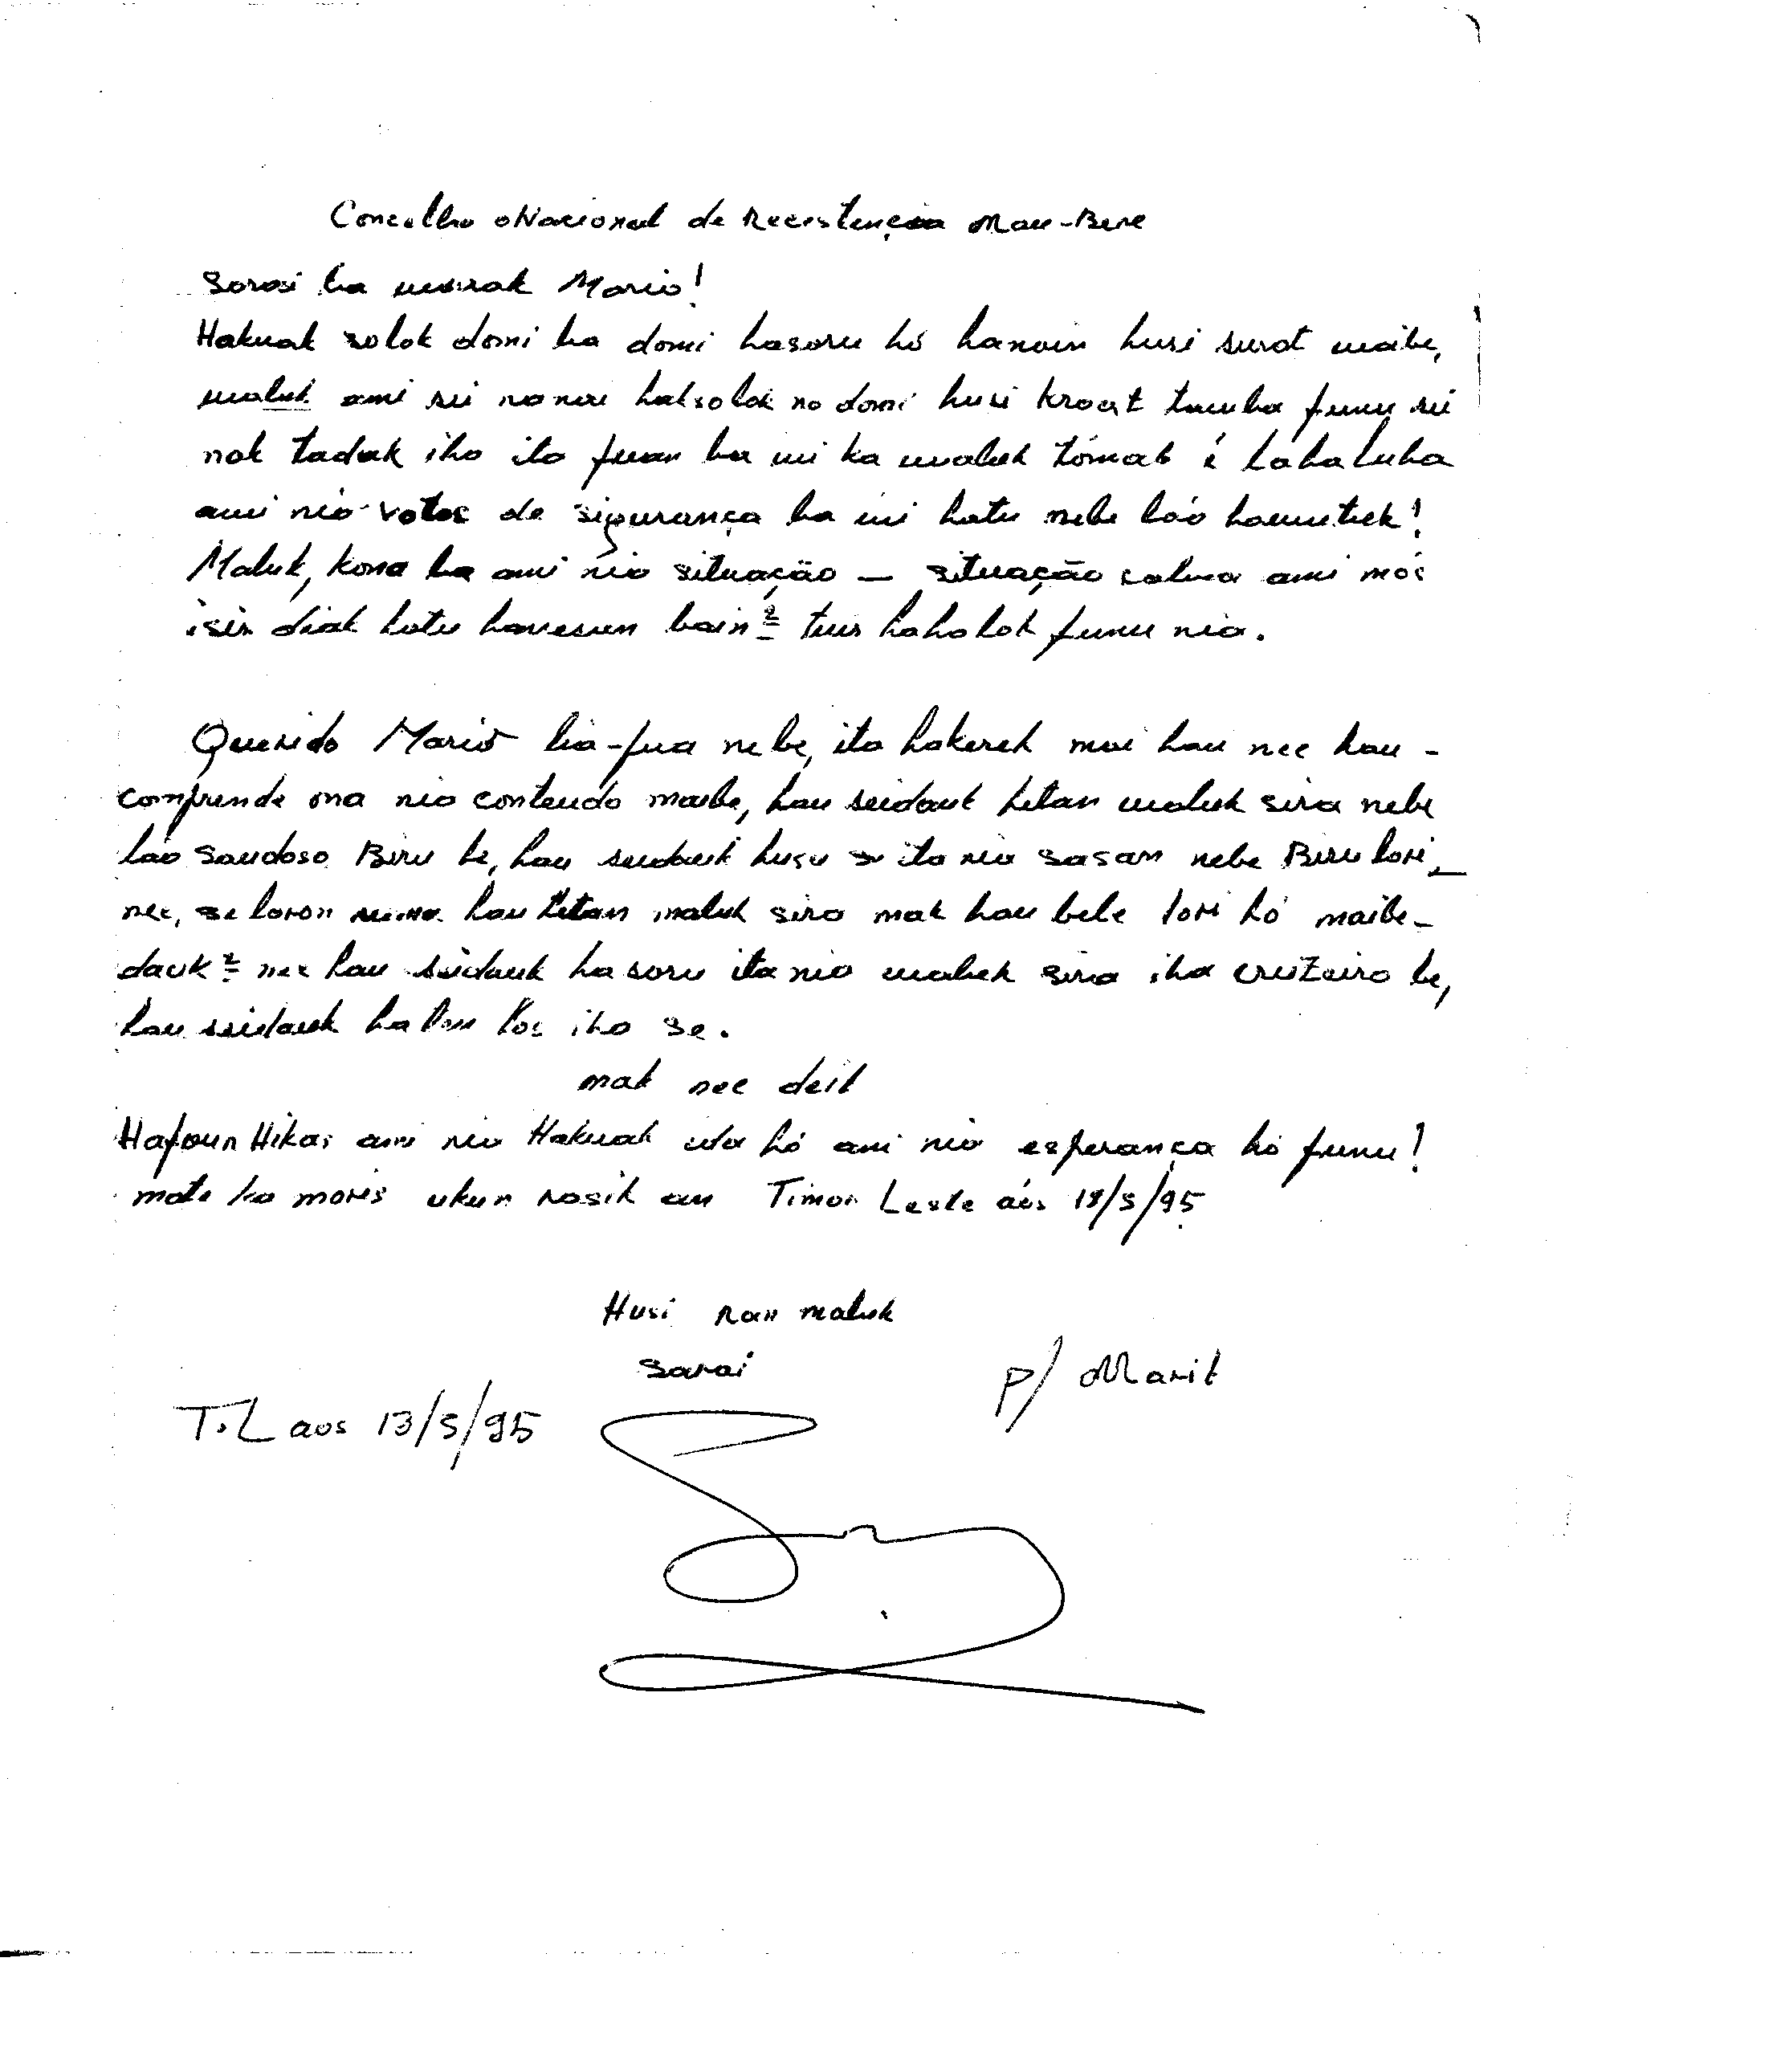 Concelho Nacional de Recistençia Mau-Bere
Sorosi ba Mario!
Hakuak solok domi ba domi hasoru hó hanoin husi surat maibe,
maluk ami sei nonoi haksolok no domi husi kroat tamba funu sei
nok tadak iho ita fuan ba mi ka maluk tómak é lahaluha
ami nia votos de sigurança ba imi hotu nebe láo hamutuk!
Maluk, kona ba ami nia situação — situação calma ami mós
isin diak hotu hanesan bain² tuir hahalok funu nia.
Querido Mario lia-fua nebe, ita hakerek mai hau nee hau -
comprende ona nia conteudo maibe, hau seidauk hetan maluk sira nebe
láo saudoso Biru be, hau seidauk husu ita nia sasan nebe Biru lori,_
nee, se loron ruma hau hetan maluk sira mak hau bele lori hó maibe-
dauk² nee hau seidauk hasoru ita nia maluk sira iha cruzeiro be,
hau seidauk hatene los iha se.
mak nee deit
Hafoun Hikas ami nia Hakuak ida hó ami nia esperança hó funu!
mate ka moris ukun rasik an Timor Leste aós 18/5/95
Husi Ran maluk
Sarai
p/ Marit
T.L aos 13/5/95